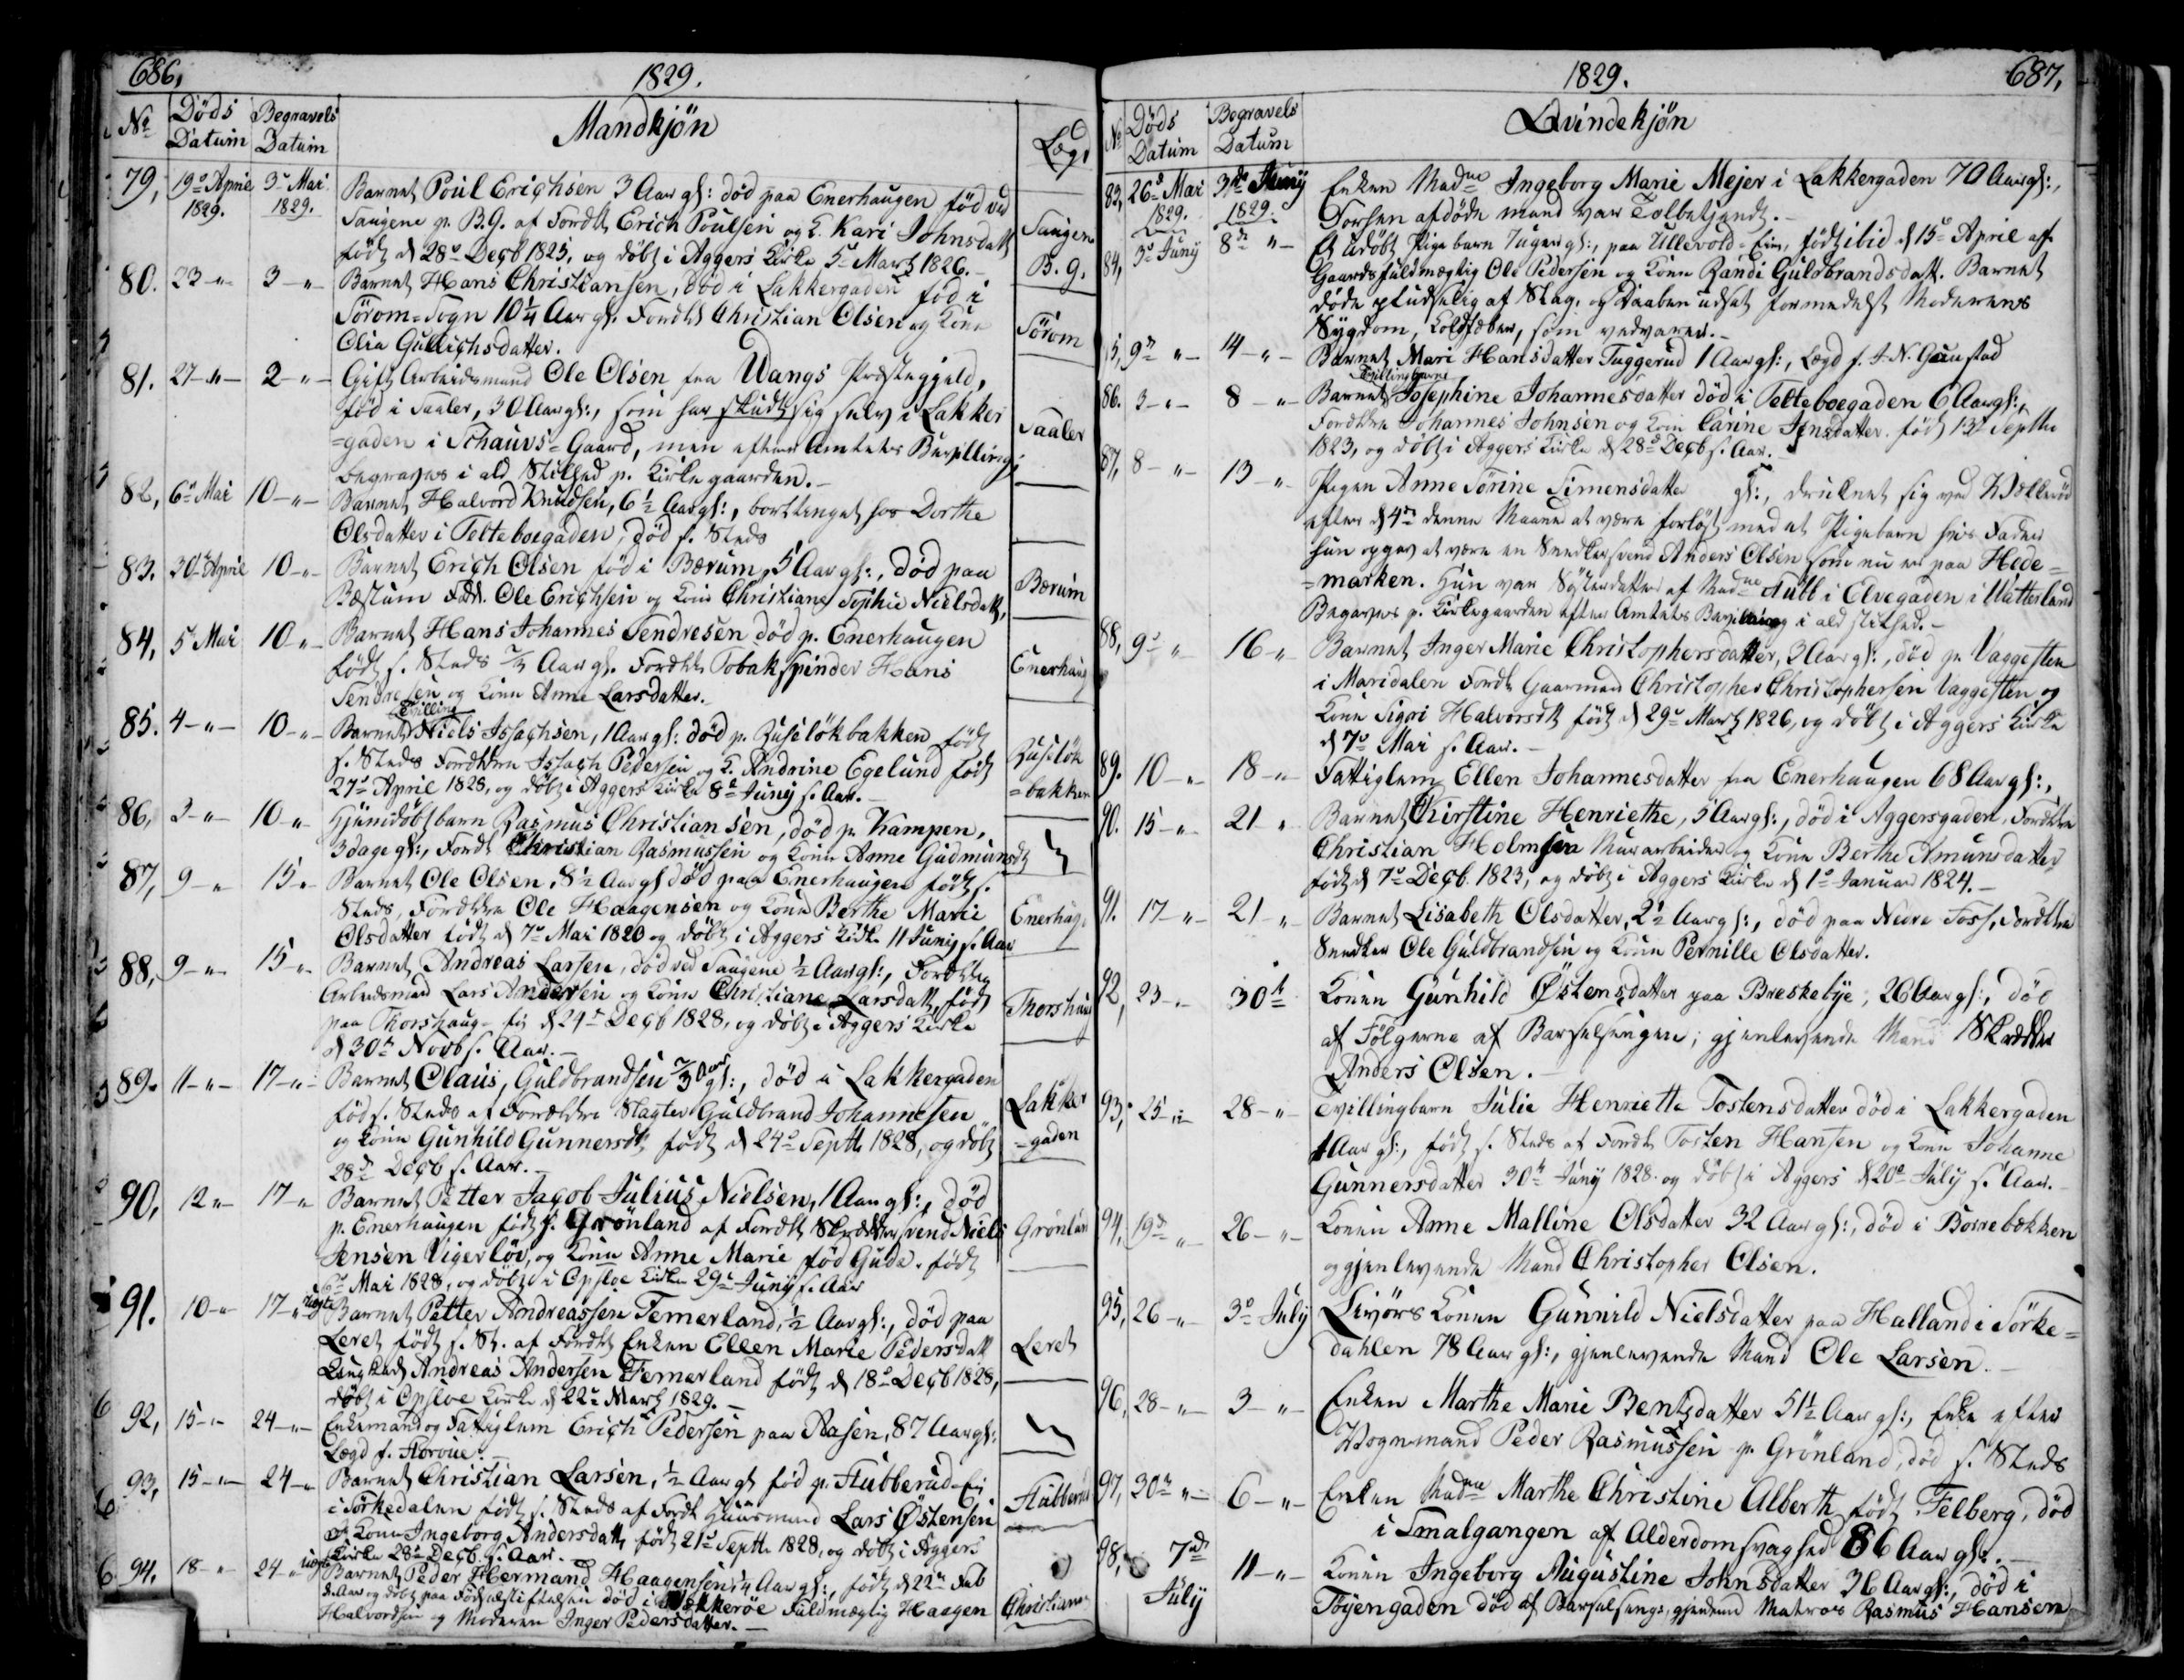 686,
1829.
No
Døds Datum
Begravels Datum
Mandkjøn
Lægd
79, 19de April 1829. 3de Mai 1829.
Barnet Poul Erichsen 3 Aar gl: død paa Enerhaugen fød ved
Saugene p. B.G. af Forældr Erich Poulsen og K. Kari Johnsdatt
født d 28de Decb 1825, og døbt i Aggers Kirke 5te Marts 1826.-
Saugen
B. g.
80. 23 -"- 3 -"-
Barnet Hans Christiansen, død i Lakkergaden fød i
Sørom-Sogn 10 1/4 Aar gl. Forældr Christian Olsen og Kone
Olia Gulichsdatter.
Sørom
81. 27 -"- 2 -"-
Gift Arbeidsmand Ole Olsen fra Wangs Præstegjeld,
fød i Saaler, 30 Aar gl:, som har skudt sig selv i Lakker
=gaden i Schauvs=Gaard, men efter Amtets Bevilling
begraves i al Stilhed p. Kirkegaarden.-
Saaler
82, 6te Mai 10 -"-
Barnet Halvord Knudsen, 6 1/2 Aar gl:, bortlenget hos Dorthe
Olsdatter i Telteboegaden, død s. Steds
83. 30te April 10 -"-
Barnet Erich Olsen fød i Bærum, 5 Aar gl:, død paa
Bæstum Fdr. Ole Erichsen og Kone Christiane Sophie Nielsdatt,
Bærum
84, 5te Mai 10 -"-
Barnet Hans Johannes Sendresen død p. Enerhaugen
født s. Steds Aar gl. Forældr Tobakspinder Hans
Sendresen og Kone Anne Larsdatter.
Enerhaug
85. 4 -"- 10 -"-
Tvilling
Barnet Niels Issachsen, 1 Aar gl: død p. Ruseløkbakken født
s. Steds Forældre Issach Pedersen og K. Andrine Egelund født
27de April 1828, og døbt i Aggers Kirke 8de Juny s. Aar.-
Ruseløk
=bakken
86, 2 -"- 10 -"-
Hjemdøbt barn Rasmus Christiansen, død p. Kampen,
3 dage gl:, Forældr Christian Rasmussen og Kone Anne Gudmunsdt
87, 9 -"- 15 -"-
Barnet Ole Olsen, 8 1/2 Aar gl død paa Enerhaugen født s.
Steds, Forældre Ole Haagensen og Kone Berthe Marie
Olsdatter født d 7de Mai 1820 og døbt i Aggers Kirke 11 Juny s. Aar
Enerhaug.
88, 9 -"- 15 -"-
Barnet Andreas Larsen, død ved Saugene 1/2 Aar gl:, Forældre
Arbeidsmand Lars Andersen og Kone Christiane Larsdatt, født
paa Thorshaug- Ei d 24de Decb 1828, og døbt i Aggers Kirke
d 30te Novb s. Aar.-
Thorshaug
89. 11 -"- 17 -"-
Barnet Claus, Guldbrandsen gl:, død i Lakkergaden
fød s. Steds af Forældre Slagter Guldbrand Johannesen
og Kone Gunhild Gunnersdt, født d 24de Septb 1828, og døbt
28de Decb s. Aar.-
Lakker
=gaden
90, 12 -"- 17 -"-
Barnet Petter Jacob Julius Nielsen, 1 Aar gl:, død
p. Enerhaugen født p. Grønland af Forældr Skrædersvend Niels
Jensen Vigerløv, og Kone Anne Marie fød Gude. født
Mai 1828, og døbt i Opsloe Kirke 29de Juny s. Aar
Grønland
91. 10 -"- 17 -"-
Uægte Barnet Petter Andreassen Femerland, 1/2 Aar gl:, død paa
Leret født s. St. af Forældr Enken Ellen Marie Pedersdatt
Ungkarl Andreas Andersen Femerland født d 18de Decb 1828,
døbt i Opsloe Kirke d 22de Marts 1829.-
Leret
92, 15 -"- 24 -"-
Enkemand og Fattiglem Erich Pedersen paa Aasen, 87 Aar gl:
Lægd f. Horoue.-
93, 15 -"- 24 -"-
Barnet Christian Larsen, 1/2 Aar gl fød p. Stubberud-Ei
i Sørkedalen født s. Steds af Forældr Huusmand Lars Østensen
og Kone Ingeborg Andersdatt, født 21de Septb 1828, og døbt i Aggers
Kirke 28de Decb s. Aar.
Stubberud
94. 18 -"- 24 -"-
uægte Barnet Peder Hermand Haagensen 1/4 Aar gl:, født d 22de Feb
s. Aar og døbt paa Fødselsstiftelsen død i Bekkerøe Fuldmægtig Haagen
Halvordsen og Moderen Inger Pedersdatter.-
Christiania
1829.
687,
No
Døds Datum
Begravels Datum
Qvindekjøn
83, 26de Mai 1829. 3de Juny 1829.
Enken Madme Ingeborg Marie Mejer i Lakkergaden 70 Aar gl:,
Forhen afdøde mand var Tolbetjendt.-
84, 3de Juny 8de -"-
Et udøbt Pige barn 7 uger gl:, paa Ullevold-Eie, født ibid d 15de April af
Gaardsfuldmægtig Ole Pedersen og Kone Randi Guldbrandsdatt. Barnet
døde pludselig af Slag, og Daaben udsat formedelst Moderens
Sygdom, Koldfeber, som vedvarer.-
5, 9de -"- 14 -"-
Barnet Mari Hansdatter Tuggerud 1 Aar gl:, Lægd f. J. N. Gaustad
86. 3 -"- 8 -"-
Tvillingbarn
Barnet Josephine Johannesdatter død i Telteboegaden 6 Aar gl:,
Forældre Johannes Johnsen og Kone Carine Jensdatter. født 13de Septbr
1823, og døbt i Aggers Kirke d 28de Decb s. Aar.-
87, 8 -"- 13 -"-
Pigen Anne Sørine Simensdatter gl:, druknet sig ved Wøllerød
efter d 4de denne Maaned at være forløst med et Pigebarn hvis Fader
hun opgav at være en Snedkersvend Anders Olsen som nu er paa Hede=
=marken. Hun var Søsterdatter af Madme Aubt i Elvegaden i Watterland
Begraves p. Kirkegaarden efter Amtets Bevilling i al stilhed.-
88, 9de -"- 16 -"-
Barnet Inger Marie Christophersdatter, 3 Aar gl:, død p. Vaggesten
i Maridalen Forældr Gaarmand Christopher Christophersen Vaggesten og
Kone Sigri Halvorsdtt født d 29de Marts 1826, og døbt i Aggers Kirke
d 7de Mai s. Aar.-
89. 10 -"- 18 -"-
Fattiglem Ellen Johannesdatter fra Enerhaugen 68 Aar gl:,
90. 15 -"- 21 -"-
Barnet Kirstine Henriethe, 5 Aar gl:, død i Aggersgaden, Forældre
Christian Holmsen Murarbeider og Kone Berthe Amunsdatter
født d 7de Decb. 1823, og døbt i Aggers Kirke d 1ste Januar 1824.-
91. 17 -"- 21 -"-
Barnet Lisabeth Olsdatter, 2 1/2 Aar gl:, død paa Nedre Foss, Forældre
Snedker Ole Guldbrandsen og Kone Pernille Olsdatter.
92, 23 -"- 30te
Konen Gunhild Østensdatter paa Breskebye, 26 Aar gl:, død
af Følgerne af Barselsengen; gjenlevende Mand Skræder
Anders Olsen.-
93, 25 -"- 28 -"-
Tvillingbarn Julie Henriette Tostensdatter død i Lakkergaden
1 Aar gl:, født s. Steds af Forældr Tosten Hansen og Kone Johanne
Gunnersdatter 30te Juny 1828. og døbt i Aggers d 20de July s. Aar.-
94, 19de -"- 26 -"-
Konen Anne Malline Olsdatter 32 Aar gl:, død i Borrebækken
og gjenlevende Mand Christopher Olsen.
95, 26 -"- 3de July
Livørs Konen Gunnild Nielsdatter paa Halland i Sørke=
dahlen 78 Aar gl:, gjenlevende Mand Ole Larsen.-
96, 28 -"- 3 -"-
Enken Marthe Marie Bentsdatter 51 1/2 Aar gl:, Enke efter
Vognmand Peder Rasmussen p. Grønland, død s. Steds
97, 30te -"- 6 -"-
Enken Madme Marthe Christine Alberth født Felberg, død
i Smalgangen af Alderdomsvaghed 86 Aar gl:.-
98, 7de July 11 -"-
Konen Ingeborg Augustine Johnsdatter 36 Aar gl:, død i
Tøyengaden død af Barselsengs, gjenlevend Matros Rasmus Hansen